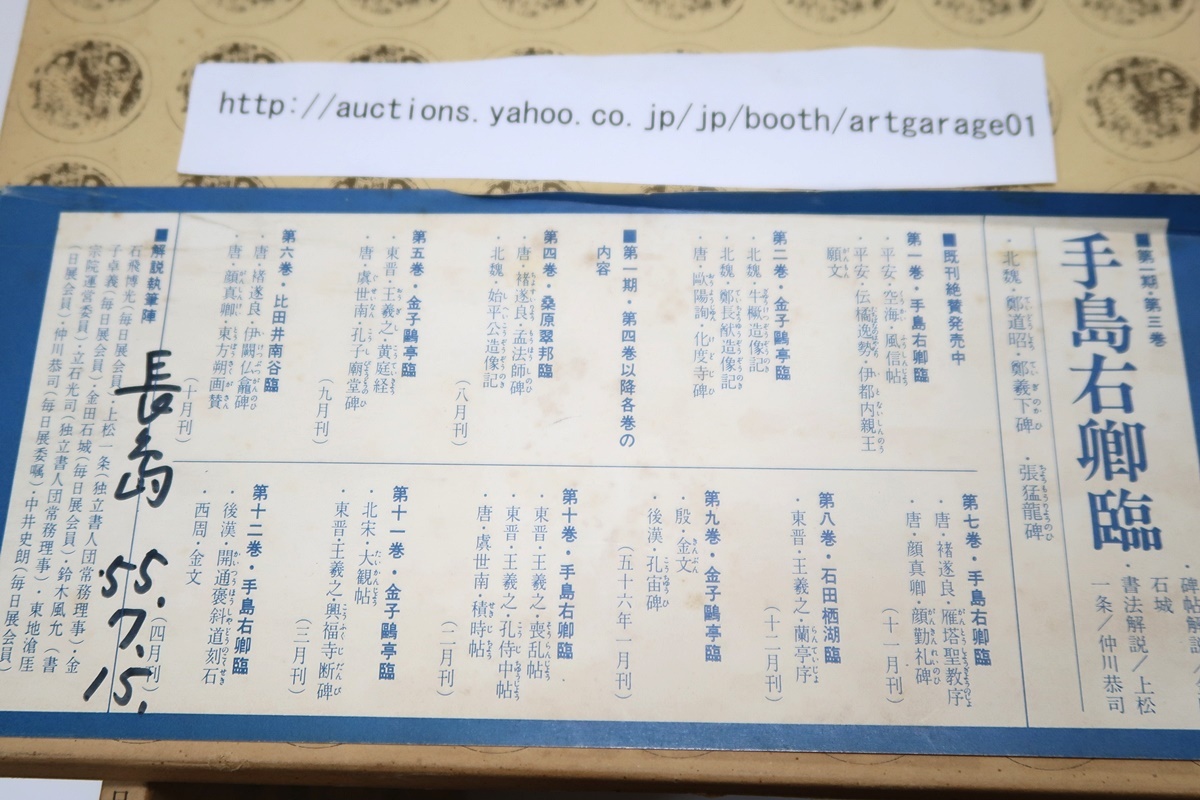 http://auctions.yahoo.co.jp/jp/booth/artgarage01
■第一期・第三巻
手島右卿臨
・北魏・鄭道昭・鄭羲下碑 ・張猛龍碑
石城
・書法解説／上松
一条／仲川恭司
■既刊絶賛発売中
第一巻・手島右卿臨
・平安・空海・風信帖
・平安・伝橘逸勢・伊都内親王
願文
第二巻・金子鷗亭臨
・北魏・牛橛造像記
・北魏・鄭長猷造像記
・唐・歐陽詢・化度寺碑
■第一期・第四巻以降各巻の
内容
第四巻・桑原翠邦臨
・唐・褚遂良・孟法師碑
・北魏・始平公造像記
（八月刊）
第五巻・金子鷗亭臨
・東晋・王羲之・黄庭経
・唐・虞世南・孔子廟堂碑
（九月刊）
第六巻・比田井南谷臨
・唐・褚遂良・伊闕仏龕碑
・唐・顔真卿・東方朔画賛
（十月刊）
第七巻・手島右卿臨
・唐・褚遂良・雁塔聖教序
・唐・顔真卿・顔勤礼碑
（十一月刊）
第八巻・石田栖湖臨
・東晋・王羲之・蘭亭序
（十二月刊）
第九巻・金子鷗亭臨
・殷・金文
・後漢・孔宙碑
（五十六年一月刊）
第十巻・手島右卿臨
・東晋・王羲之・喪乱帖
・東晋・王羲之・孔侍中帖
・唐・虞世南・積時帖
（二月刊）
第十一巻・金子鷗亭臨
・北宋・大観帖
・東晋王羲之・興福寺断碑
（三月刊）
第十二巻・手島右卿臨
・後漢・開通褒斜道刻石
・西周・金文
（四月刊）
■解説執筆陣
石飛博光（毎日展会員）・上松一条（独立書人団常務理事）・金
子卓義（毎日展会員）・金田石城（毎日展会員）・鈴木風允（書
宗院運営委員）・立石光司（独立書人団常務理事）・東地滄厓
（日展会員）・仲川恭司（毎日展委嘱）・中井史朗（毎日展会員）
長島 55.7.15.